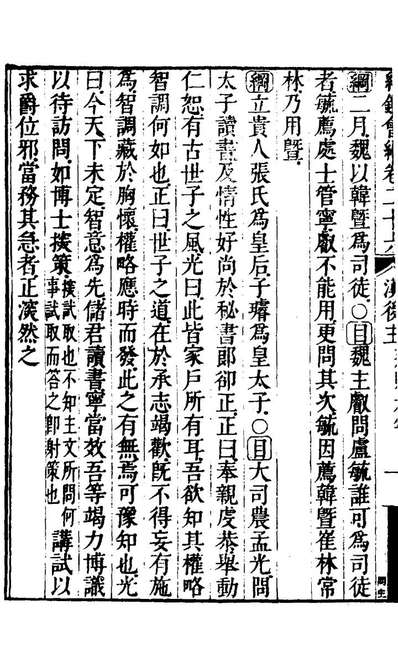 綱鑑會編卷二十六 漢後主
綱二月魏以韓暨爲司徒○目魏主叡問盧毓誰可爲司徒
者毓薦處士管寧叡不能用更問其次毓因薦韓暨崔林常
林乃用暨
綱立貴人張氏爲皇后子璿爲皇太子○目大司農孟光問
太子讀書及情性好尚於秘書郎郤正正曰奉親虔恭舉動
仁恕有古世子之風光曰此皆家戶所有耳吾欲知其權略
智調何如也正曰世子之道在於承志竭歡旣不得妄有施
爲智調藏於胸懷權略應時而發此之有無焉可豫知也光
曰今天下未定智意爲先儲君讀書寧當效吾等竭力博識
以待訪問如博士探策探試取也不知主文所問何事試取而答之卽射策也講試以
求爵位邪當務其急者正深然之